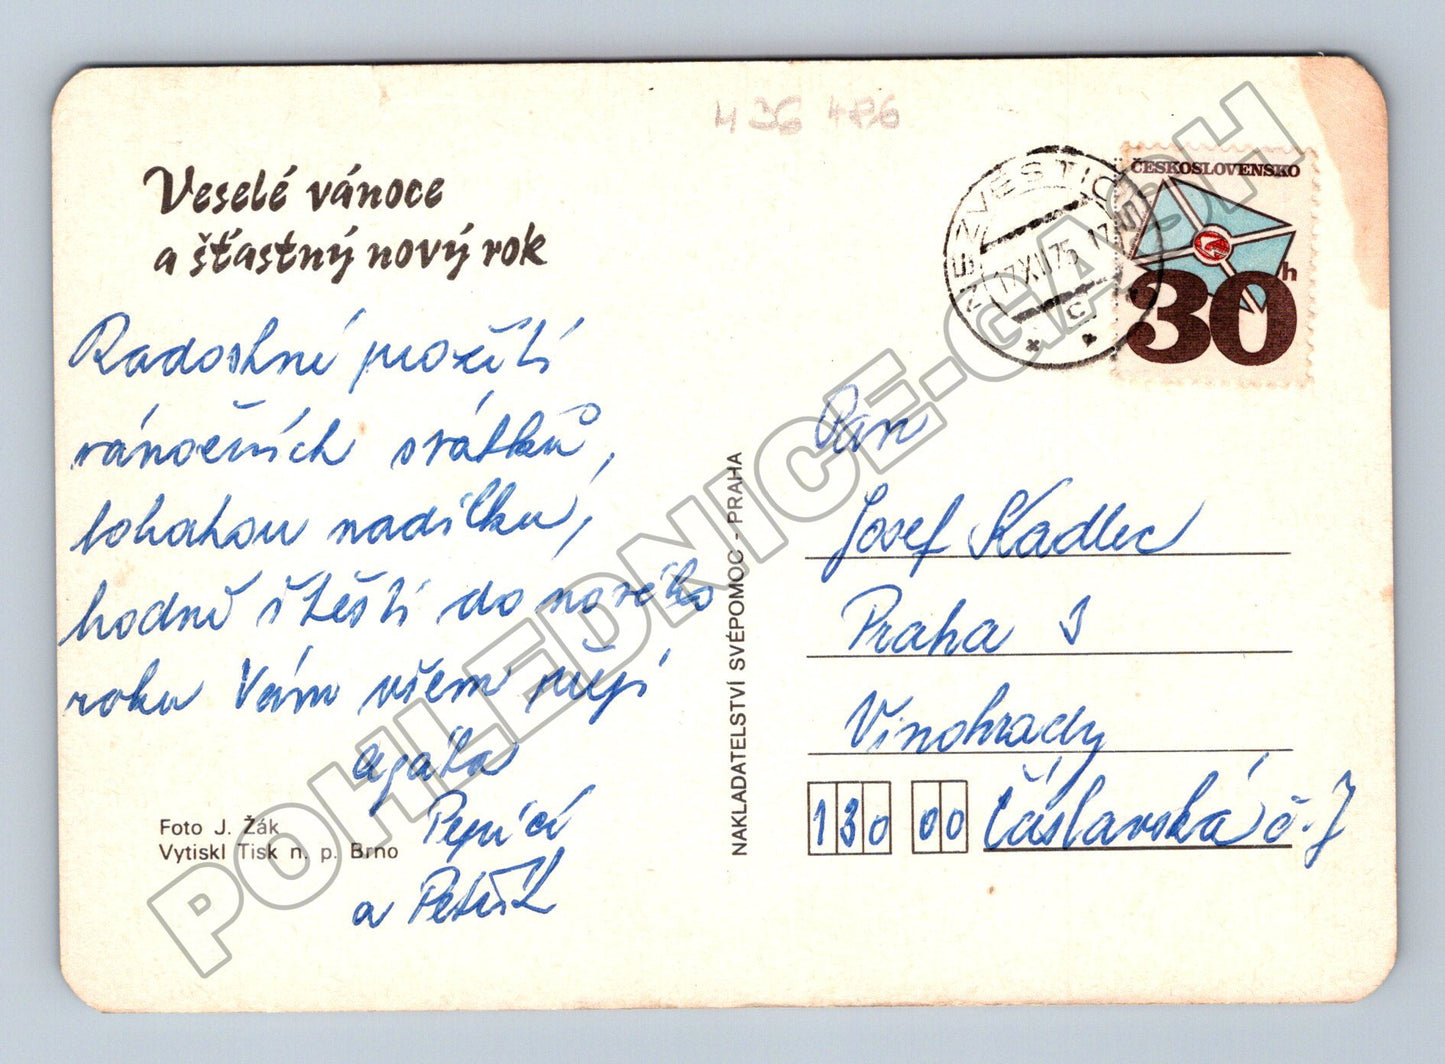 436 486
Veselé vánoce
a šťastný nový rok
Radostné prožití
vánočních svátků,
bohatou nadílku,
hodně štěstí do nového
roku Vám všem přejí
Agáta
Pepíčci
a Petřík
Foto J. Žák
Vytiskl Tisk n. p. Brno
NAKLADATELSTVÍ SVÉPOMOC - PRAHA
NEZVĚSTICE
17.XII.75.17
c
ČESKOSLOVENSKO
30h
Pan
Josef Kadlec
Praha 3
Vinohrady
130 00 Čáslavská č. 7
POHLEDNICE-GAASH